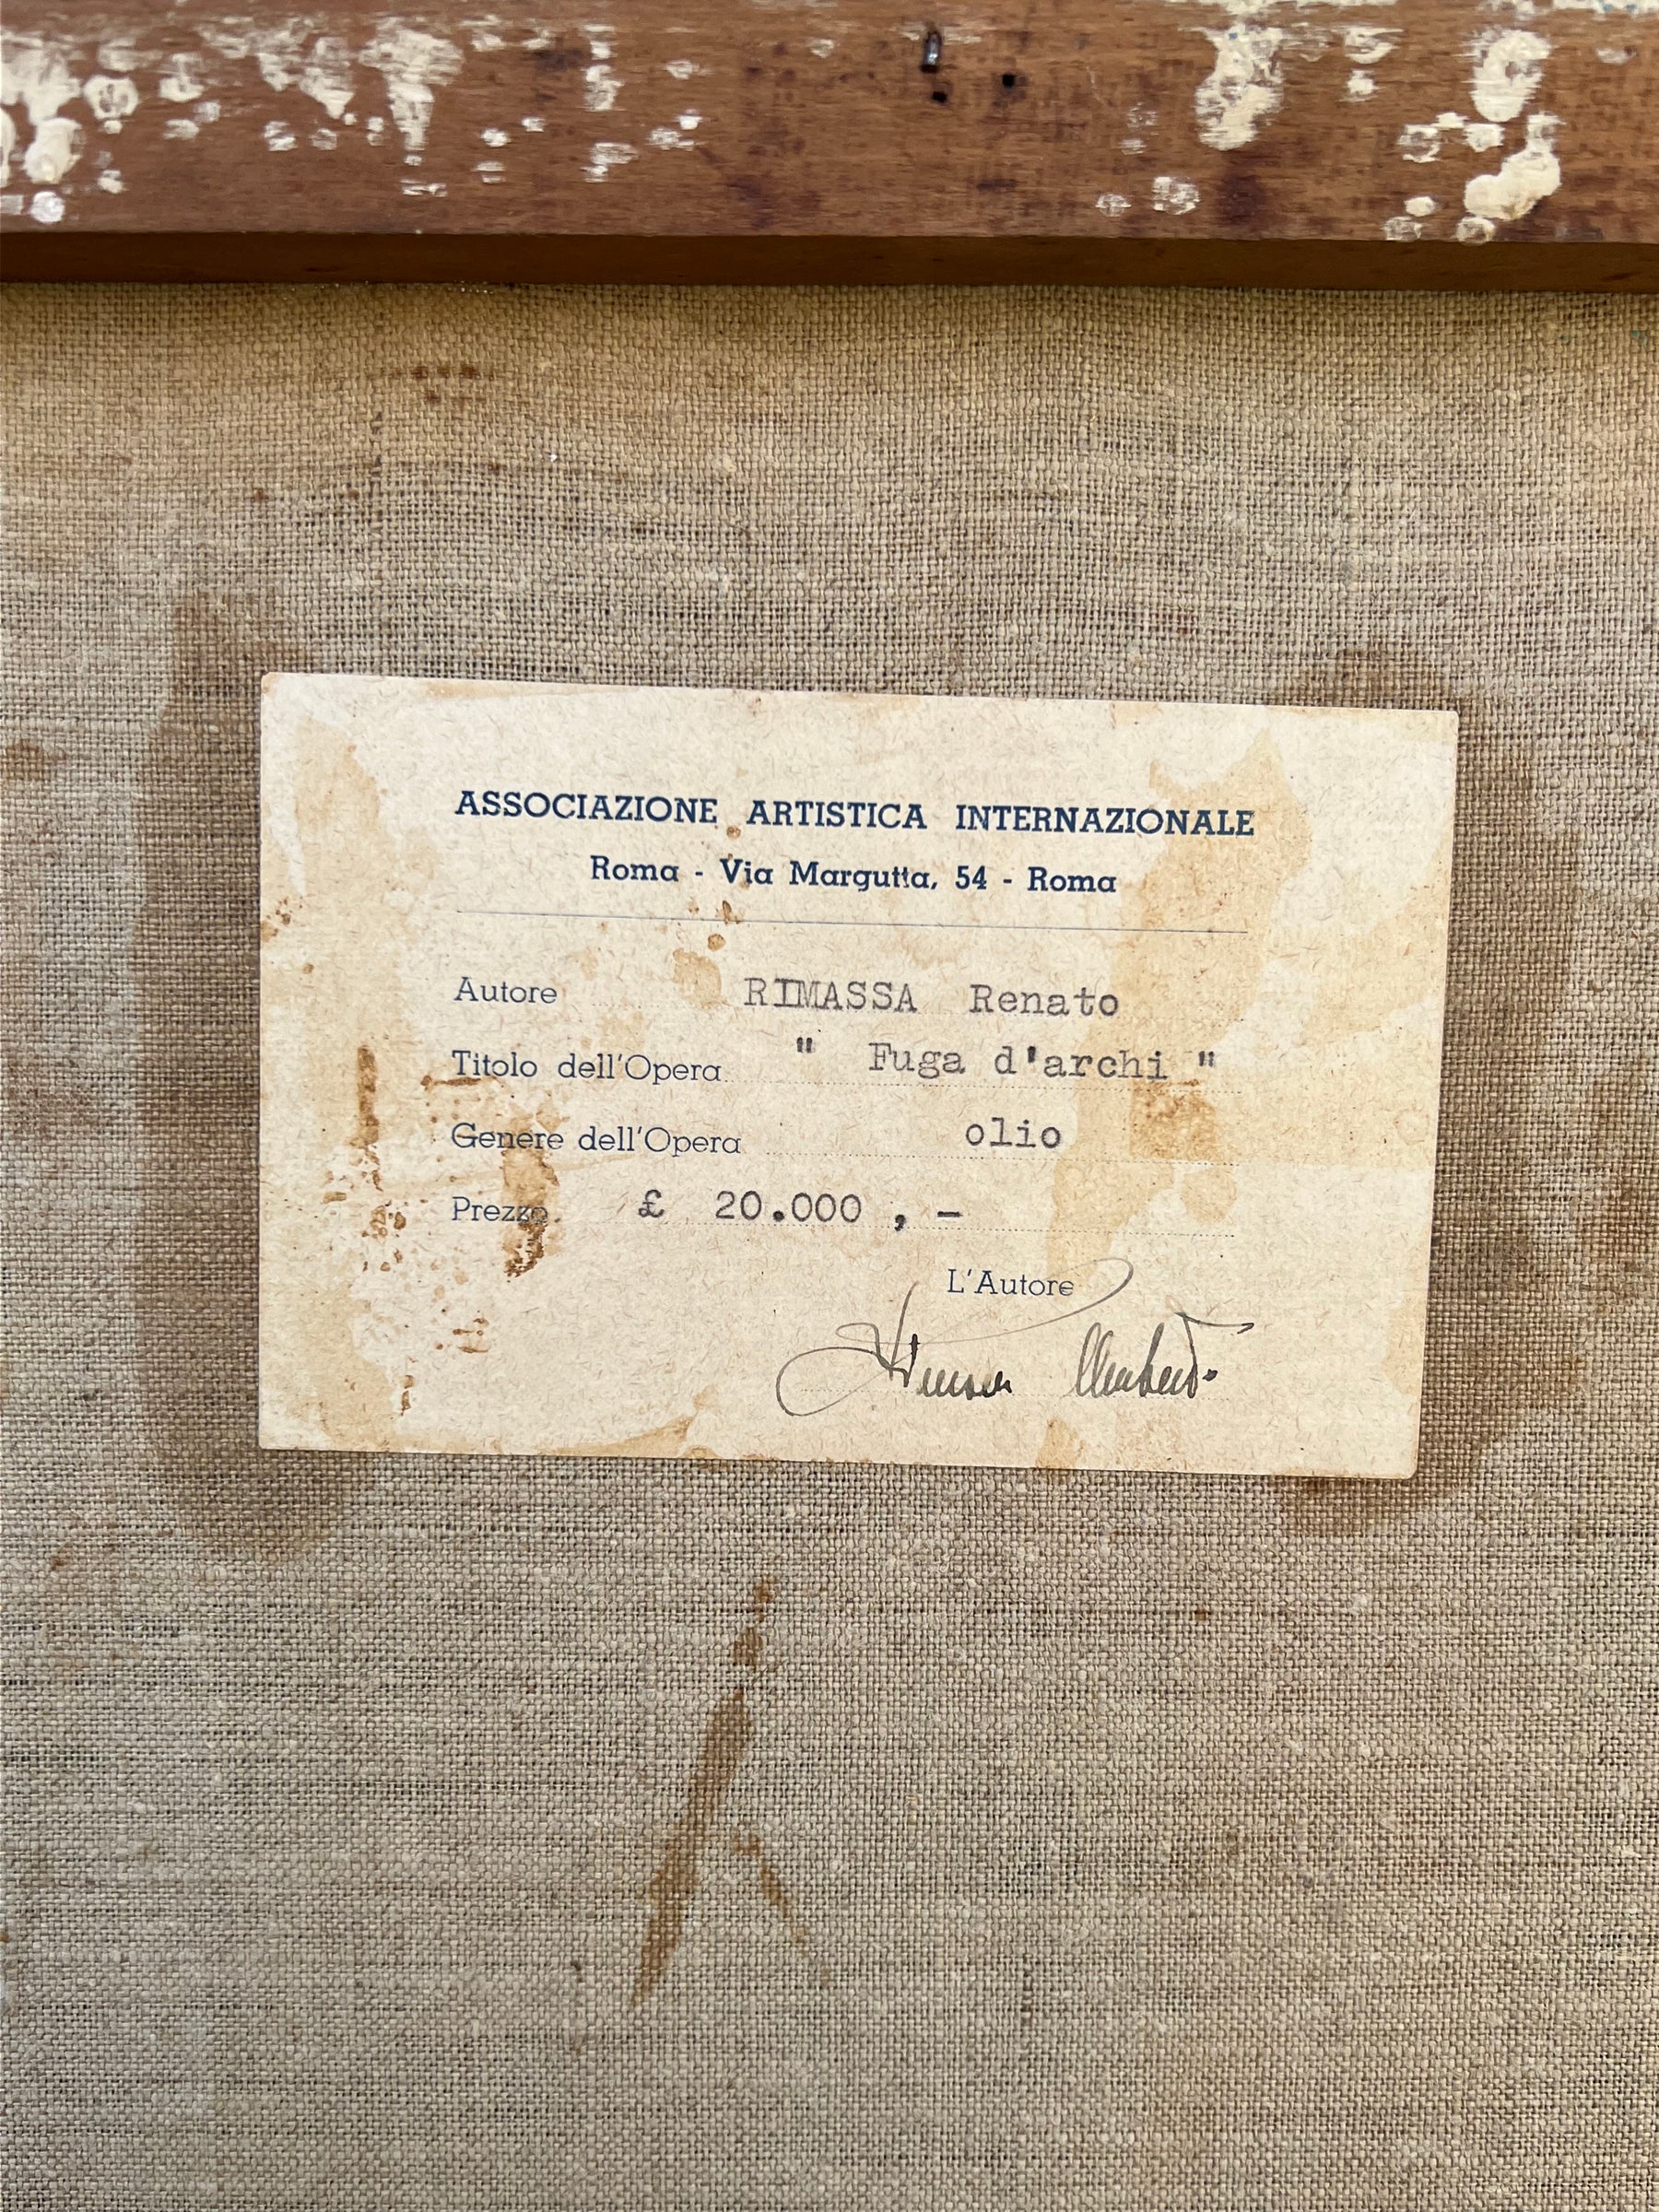 ASSOCIAZIONE ARTISTICA INTERNAZIONALE
Roma - Via Margutta, 54 - Roma
Autore RIMASSA Renato
Titolo dell'Opera " Fuga d'archi "
Genere dell'Opera olio
Prezzo £ 20.000 , -
L'Autore